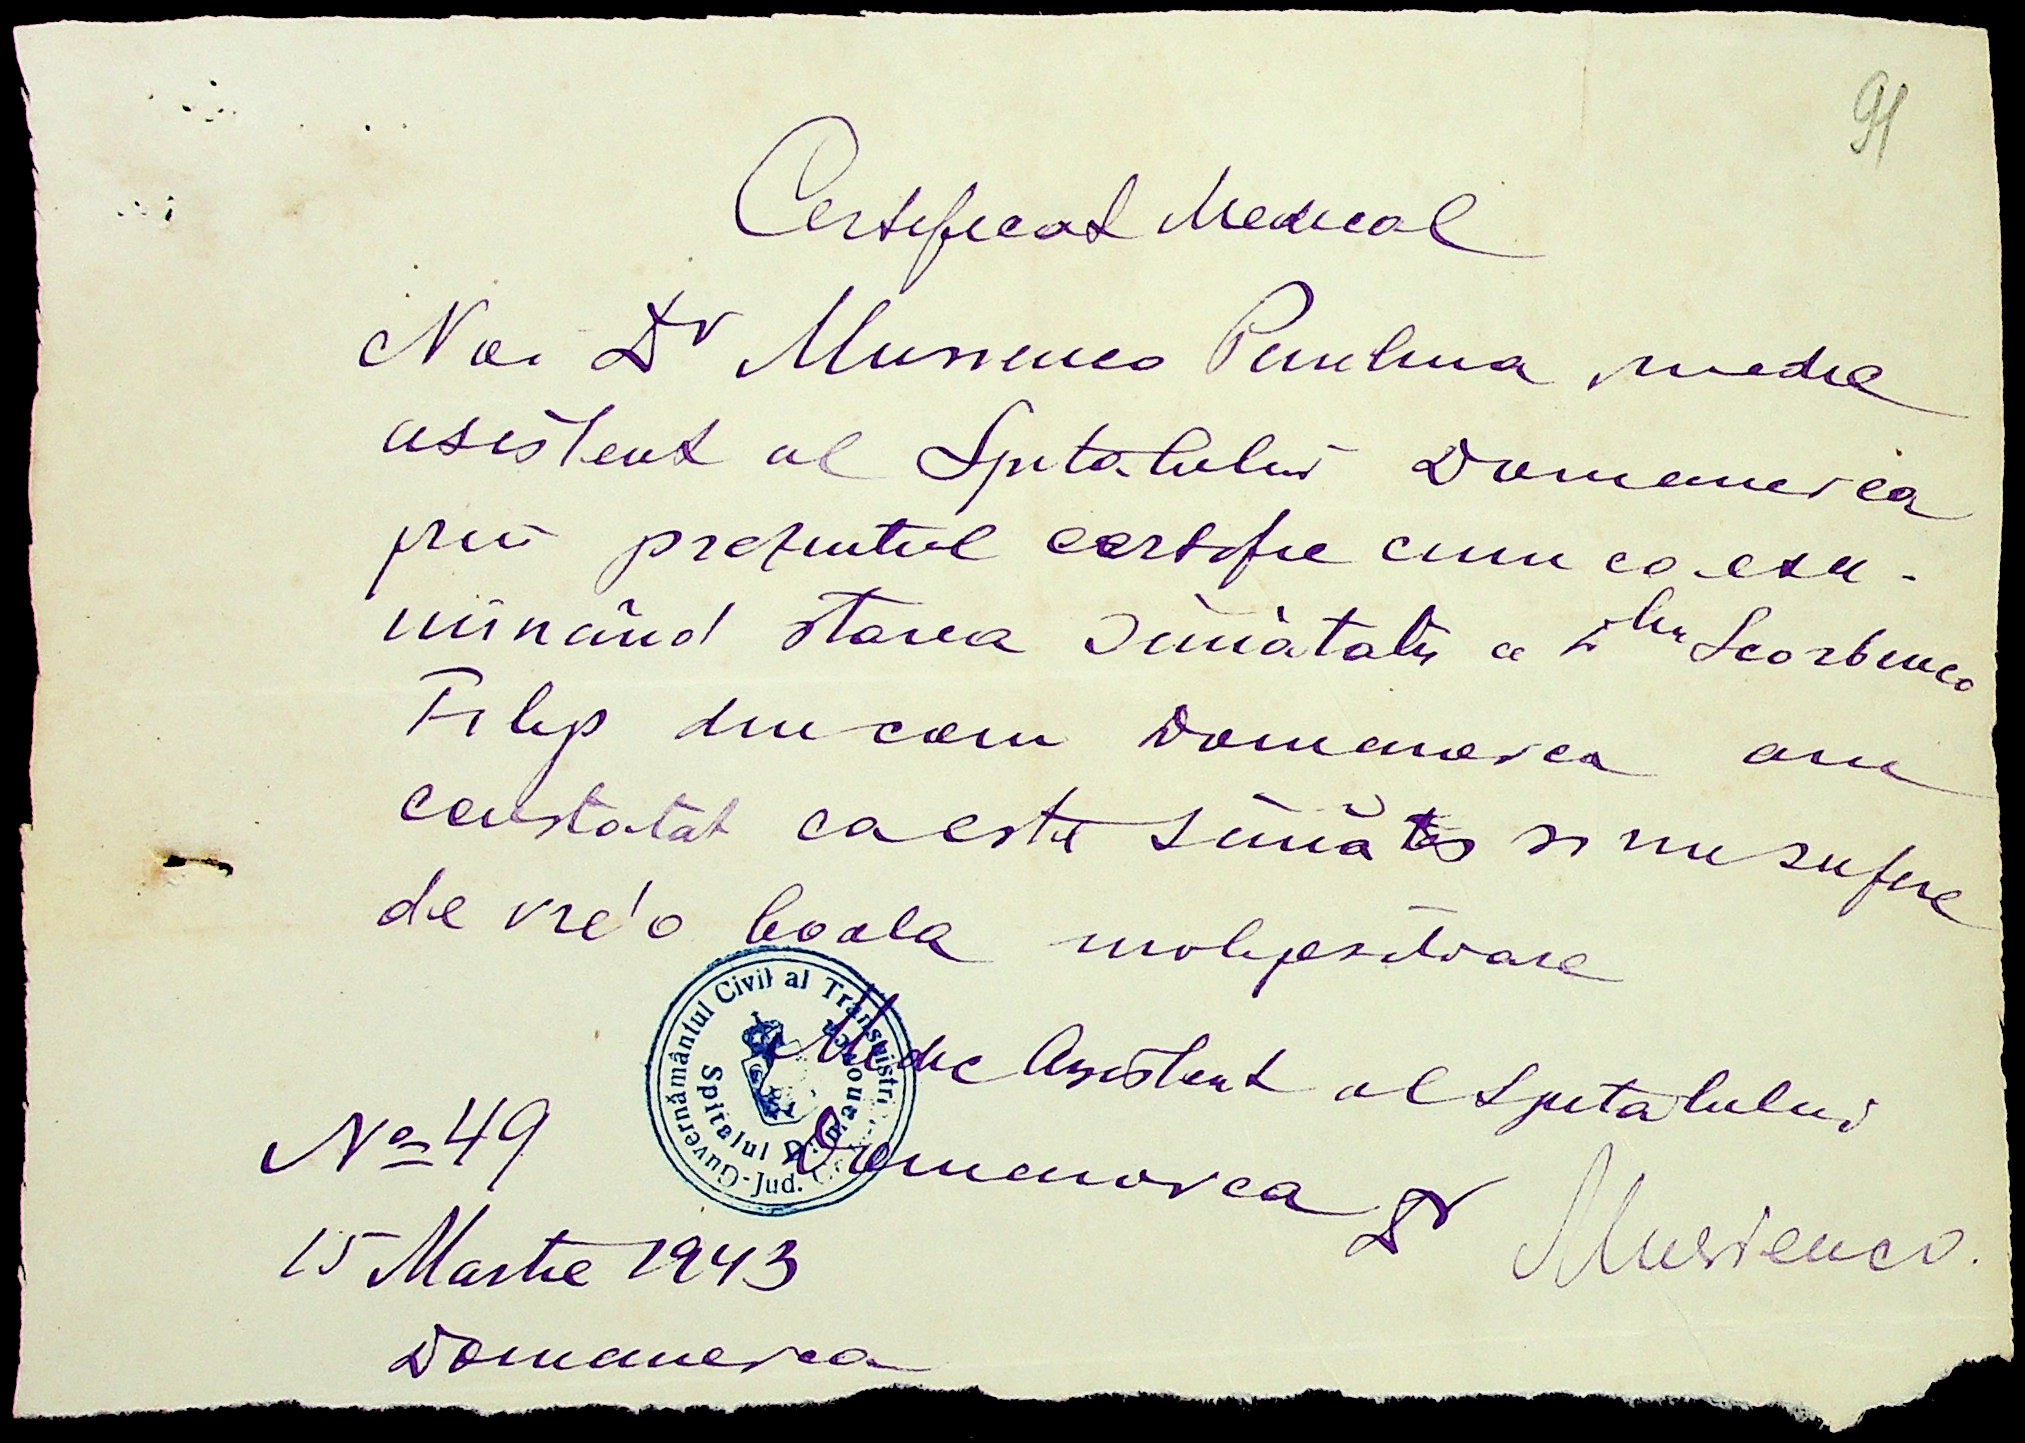 91
Certificat Medical
Noi Dr Musienco Paulina medic
asistent al Spitalului Domanevca
prin prezentul certific cum ca exa-
minând starea sănătatii a Dlui Scorbenco
Filip din com Domanevca am
constatat ca este sănătos si nu sufere
de vre'o boala molipsitoare
Medic Asistent al Spitalului
Domanovca Dr Musienco.
Guvernământul Civil al Transnistriei
-Jud.
Spitalul Domanovca
No 49
15 Martie 1943
Domanevca